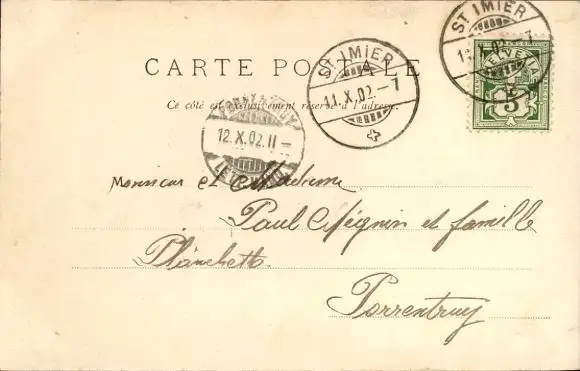 ST IMIER
ST IMIER
11.X.02.-7
HELVETIA
5
CARTE POSTALE
Ce côté est exclusivement réservé à l'adresse.
PORRENTRUY
12.X.02.II
Monsieur et Madame
Paul Mégnin et famille
Planchett.
Porrentruy